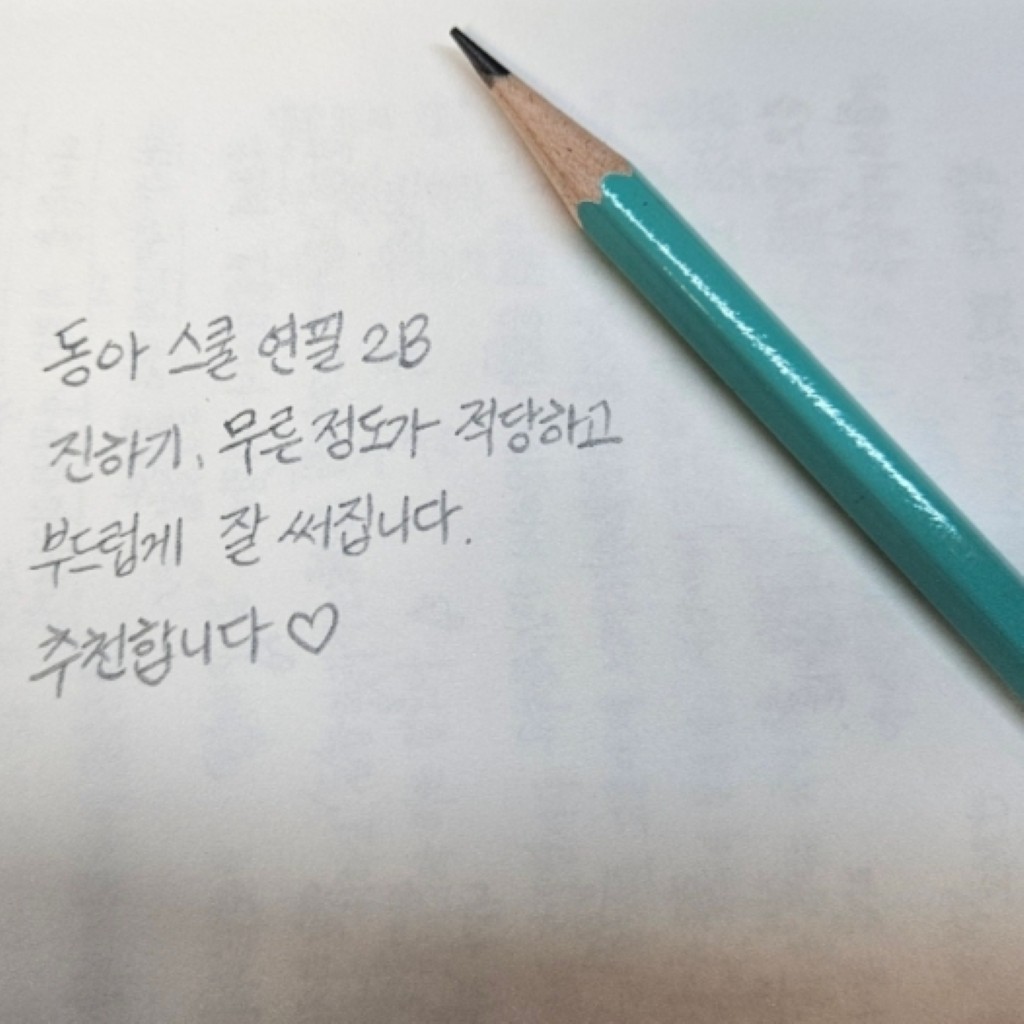 동아 스쿨 연필 2B
진하기, 무른 정도가 적당하고
부드럽게 잘 써집니다.
추천합니다 ♡